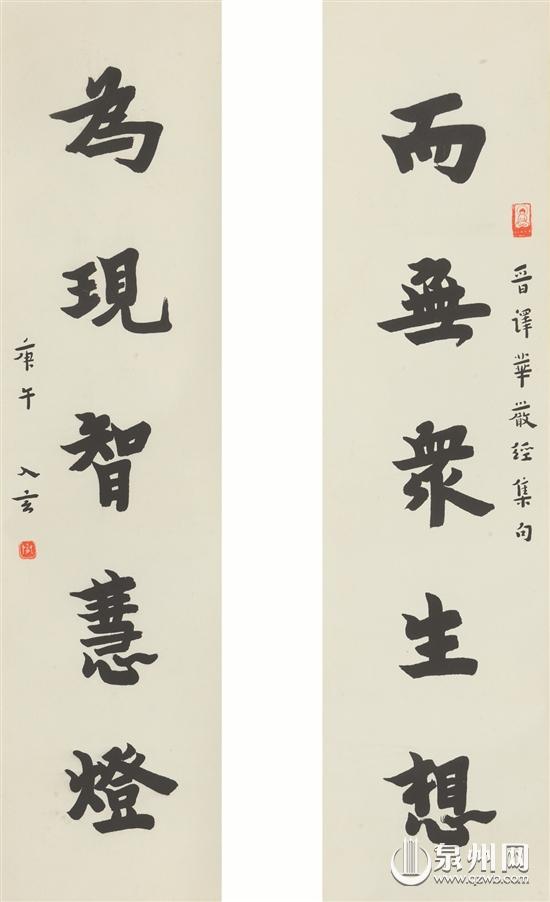 晉譯華嚴經集句
而無眾生想
為現智慧燈
庚午 入玄
泉州网
www.qzwb.com